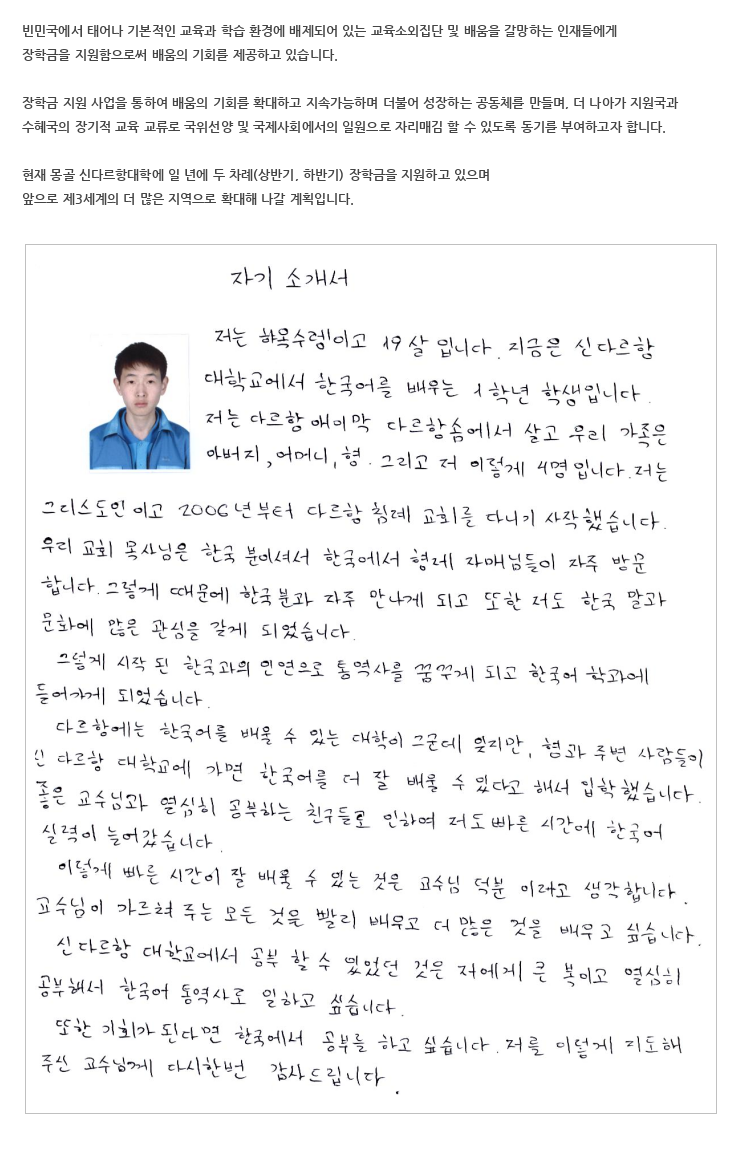 빈민국에서 태어나 기본적인 교육과 학습 환경에 배제되어 있는 교육소외집단 및 배움을 갈망하는 인재들에게
장학금을 지원함으로써 배움의 기회를 제공하고 있습니다.
장학금 지원 사업을 통하여 배움의 기회를 확대하고 지속가능하며 더불어 성장하는 공동체를 만들며, 더 나아가 지원국과
수혜국의 장기적 교육 교류로 국위선양 및 국제사회에서의 일원으로 자리매김 할 수 있도록 동기를 부여하고자 합니다.
현재 몽골 신다르항대학에 일 년에 두 차례(상반기, 하반기) 장학금을 지원하고 있으며
앞으로 제3세계의 더 많은 지역으로 확대해 나갈 계획입니다.
자기 소개서
저는 19살 입니다. 지금은 신다르항
대학교에서 한국어를 배우는 1학년 학생입니다.
저는 다르항 애이막 다르항솜에서 살고 우리 가족은
아버지, 어머니, 형. 그리고 저 이렇게 4명입니다. 저는
그리스도인이고 2006년부터 다르항 침례 교회를 다니기 시작했습니다.
우리 교회 목사님은 한국 분이셔서 한국에서 형제 자매님들이 자주 방문
합니다. 그렇게 때문에 한국분과 자주 만나게 되고 또한 저도 한국 말과
문화에 많은 관심을 갖게 되었습니다.
그렇게 시작 된 한국과의 인연으로 통역사를 꿈꾸게 되고 한국어 학과에
들어가게 되었습니다.
다르항에는 한국어를 배울 수 있는 대학이 2군데 있지만, 형과 주변 사람들이
신 다르항 대학교에 가면 한국어를 더 잘 배울 수 있다고 해서 입학했습니다.
좋은 교수님과 열심히 공부하는 친구들로 인하여 저도 빠른 시간에 한국어
실력이 늘어갔습니다.
이렇게 빠른 시간이 잘 배울 수 있는 것은 교수님 덕분 이라고 생각합니다.
교수님이 가르쳐 주는 모든 것을 빨리 배우고 더 많은 것을 배우고 싶습니다.
신다르항 대학교에서 공부 할 수 있었던 것은 저에게 큰 복이고 열심히
공부해서 한국어 통역사로 일하고 싶습니다.
또한 기회가 된다면 한국에서 공부를 하고 싶습니다. 저를 이렇게 지도해
주신 교수님께 다시한번 감사드립니다.